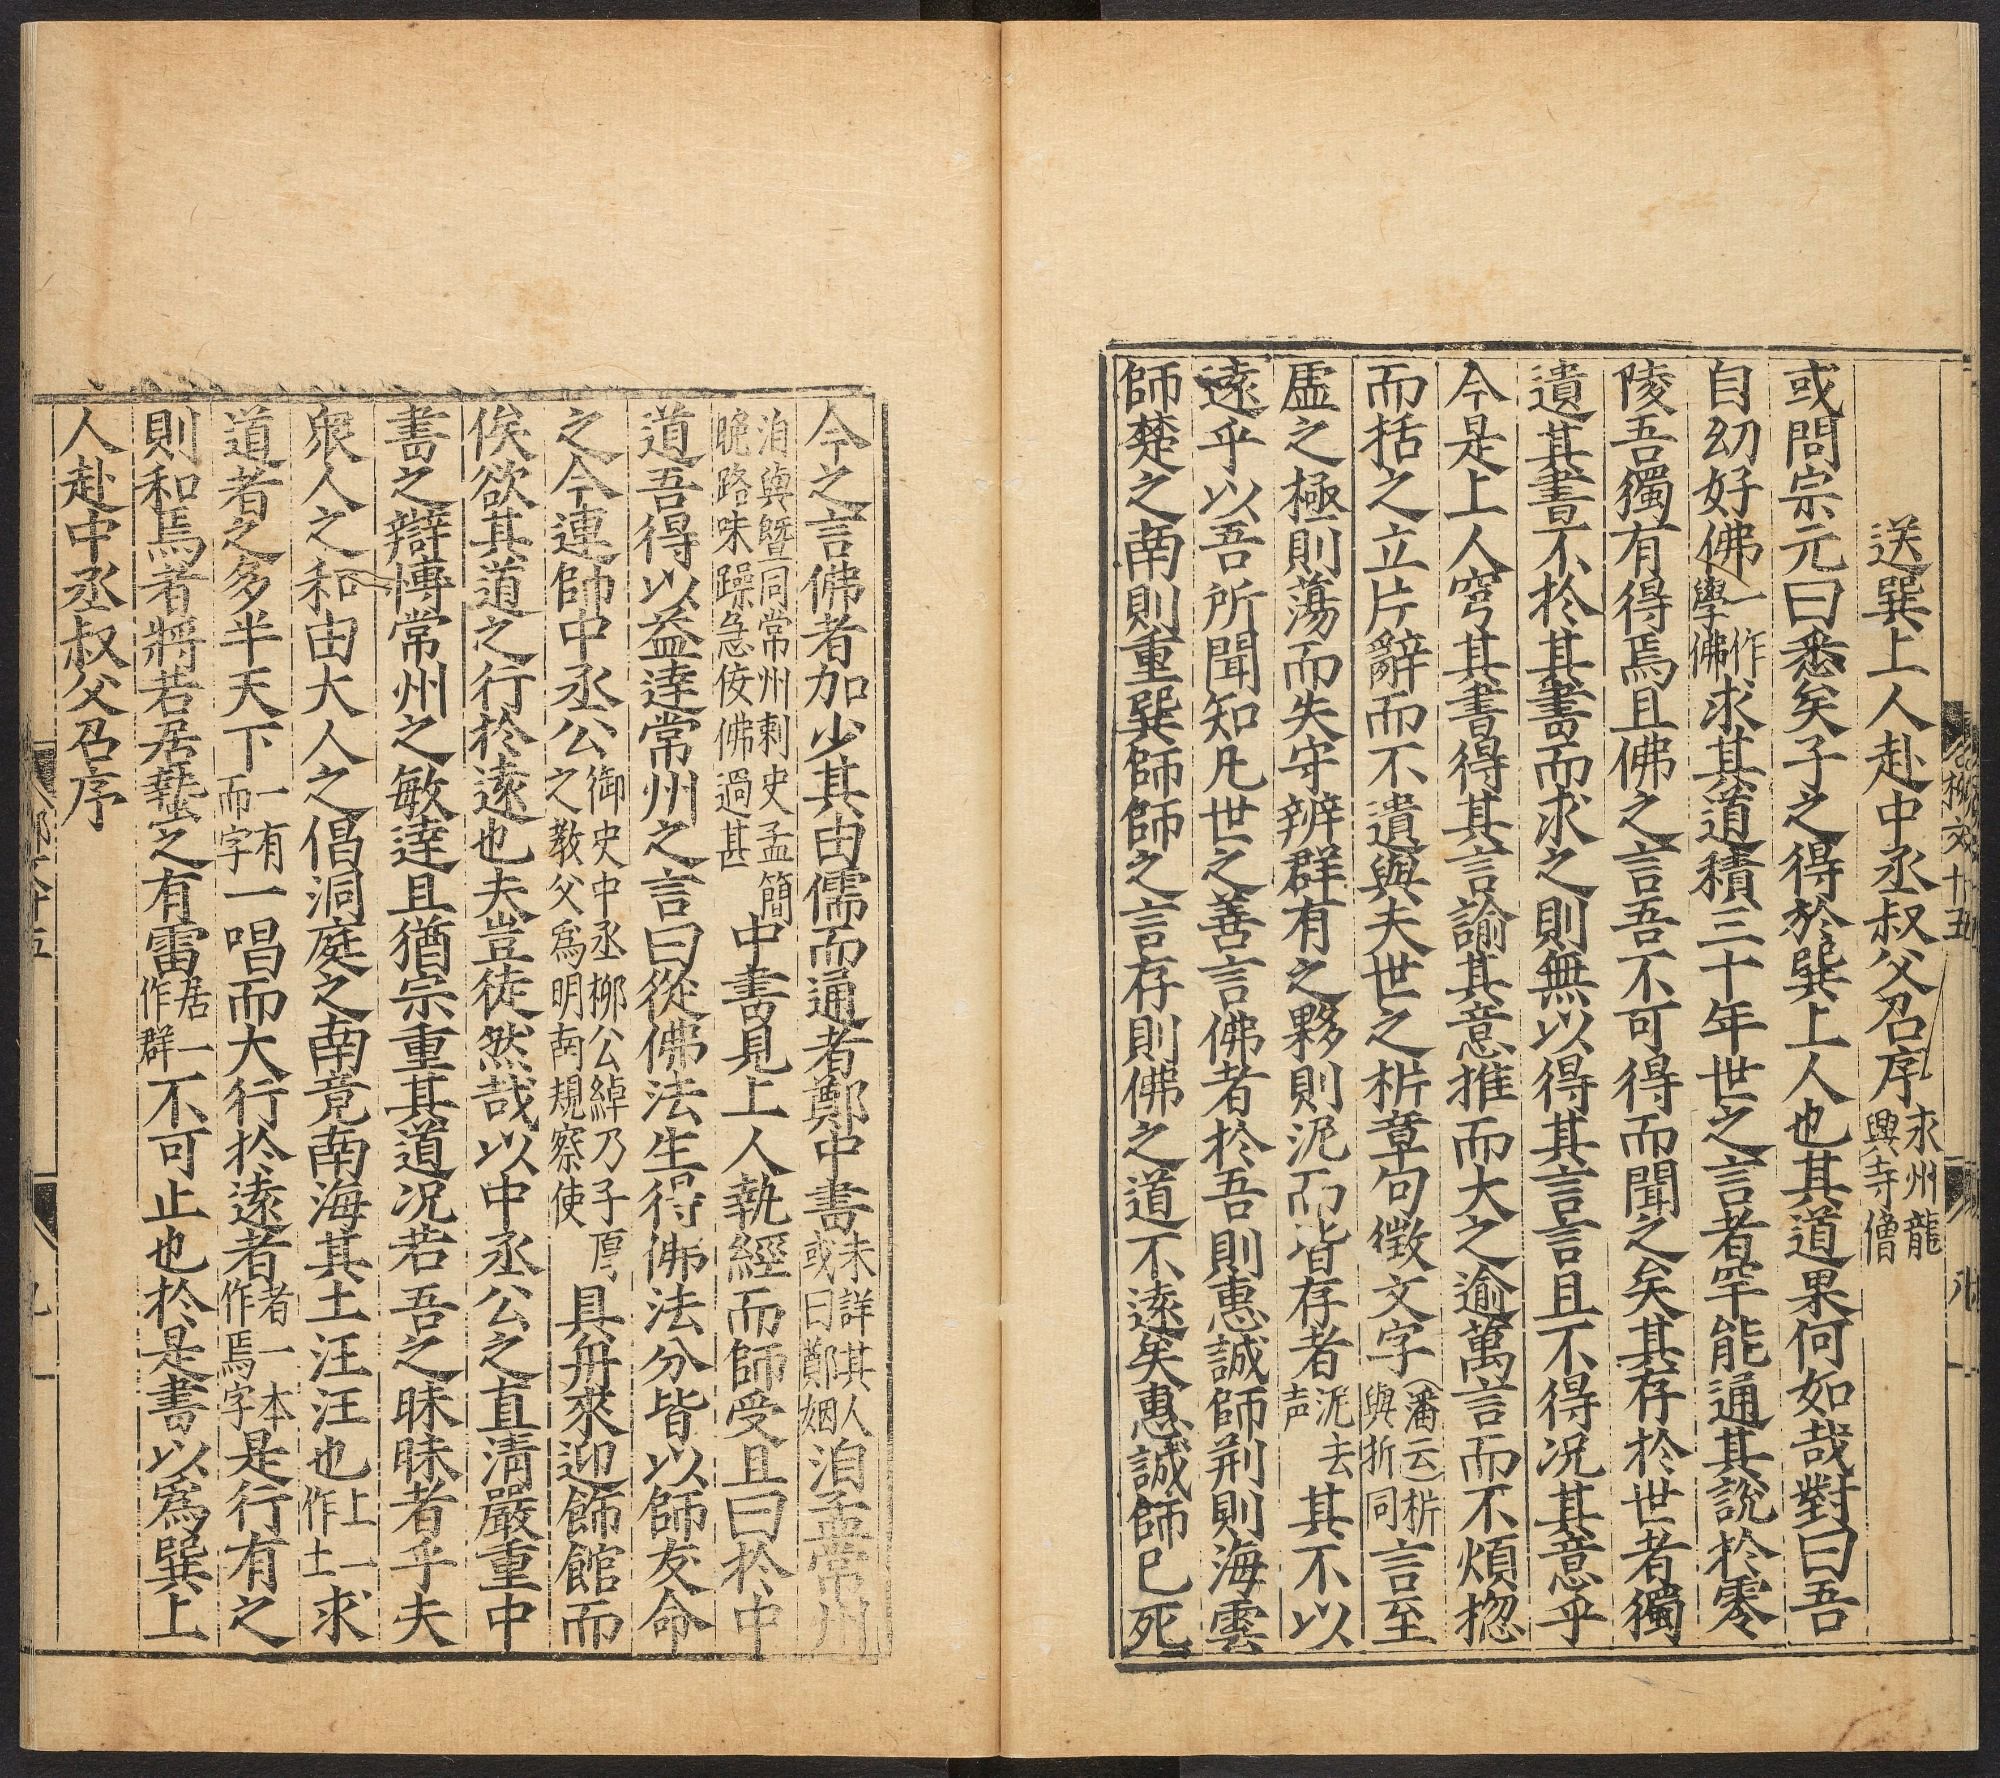 送巽上人赴中丞叔父召序永州龍興寺僧
或問宗元曰悉矣子之得於巽上人也其道果何如哉對曰吾
自幼好佛一作學佛求其道積三十年世之言者罕能通其說於零
陵吾獨有得焉且佛之言吾不可得而聞之矣其存於世者獨
遺其書不於其書而求之則無以得其言言且不得况其意乎
今是上人窮其書得其言諭其意推而大之逾萬言而不煩揔
而括之立片辭而不遺與夫世之析章句徵文字潘云析與折同言至
虛之極則蕩而失守辨群有之夥則泥而皆存者泥去声其不以
遠乎以吾所聞知凡世之善言佛者於吾則惠誠師荆則海雲
師楚之南則重巽師師之言存則佛之道不遠矣惠誠師已死
今之言佛者加少其由儒而通者鄭中書未詳其人或曰鄭姻洎孟常州
洎與曁同常州刺史孟簡晚路味躁急佞佛過甚中書見上人執經而師受且曰於中
道吾得以益達常州之言曰從佛法生得佛法分皆以師友命
之今連帥中丞公御史中丞柳公綽乃子厚之敎父爲明南規察使具舟來迎飾館而
俟欲其道之行於遠也夫豈徒然哉以中丞公之直淸嚴重中
書之辯博常州之敏達且猶宗重其道况若吾之昧昧者乎夫
衆人之和由大人之倡洞庭之南竟南海其土汪汪也上一作士求
道者之多半天下一有而字一唱而大行於遠者者一本作焉字是行有之
則和焉者將若居蟄之有雷居一作群不可止也於是書以爲巽上
人赴中丞叔父召序